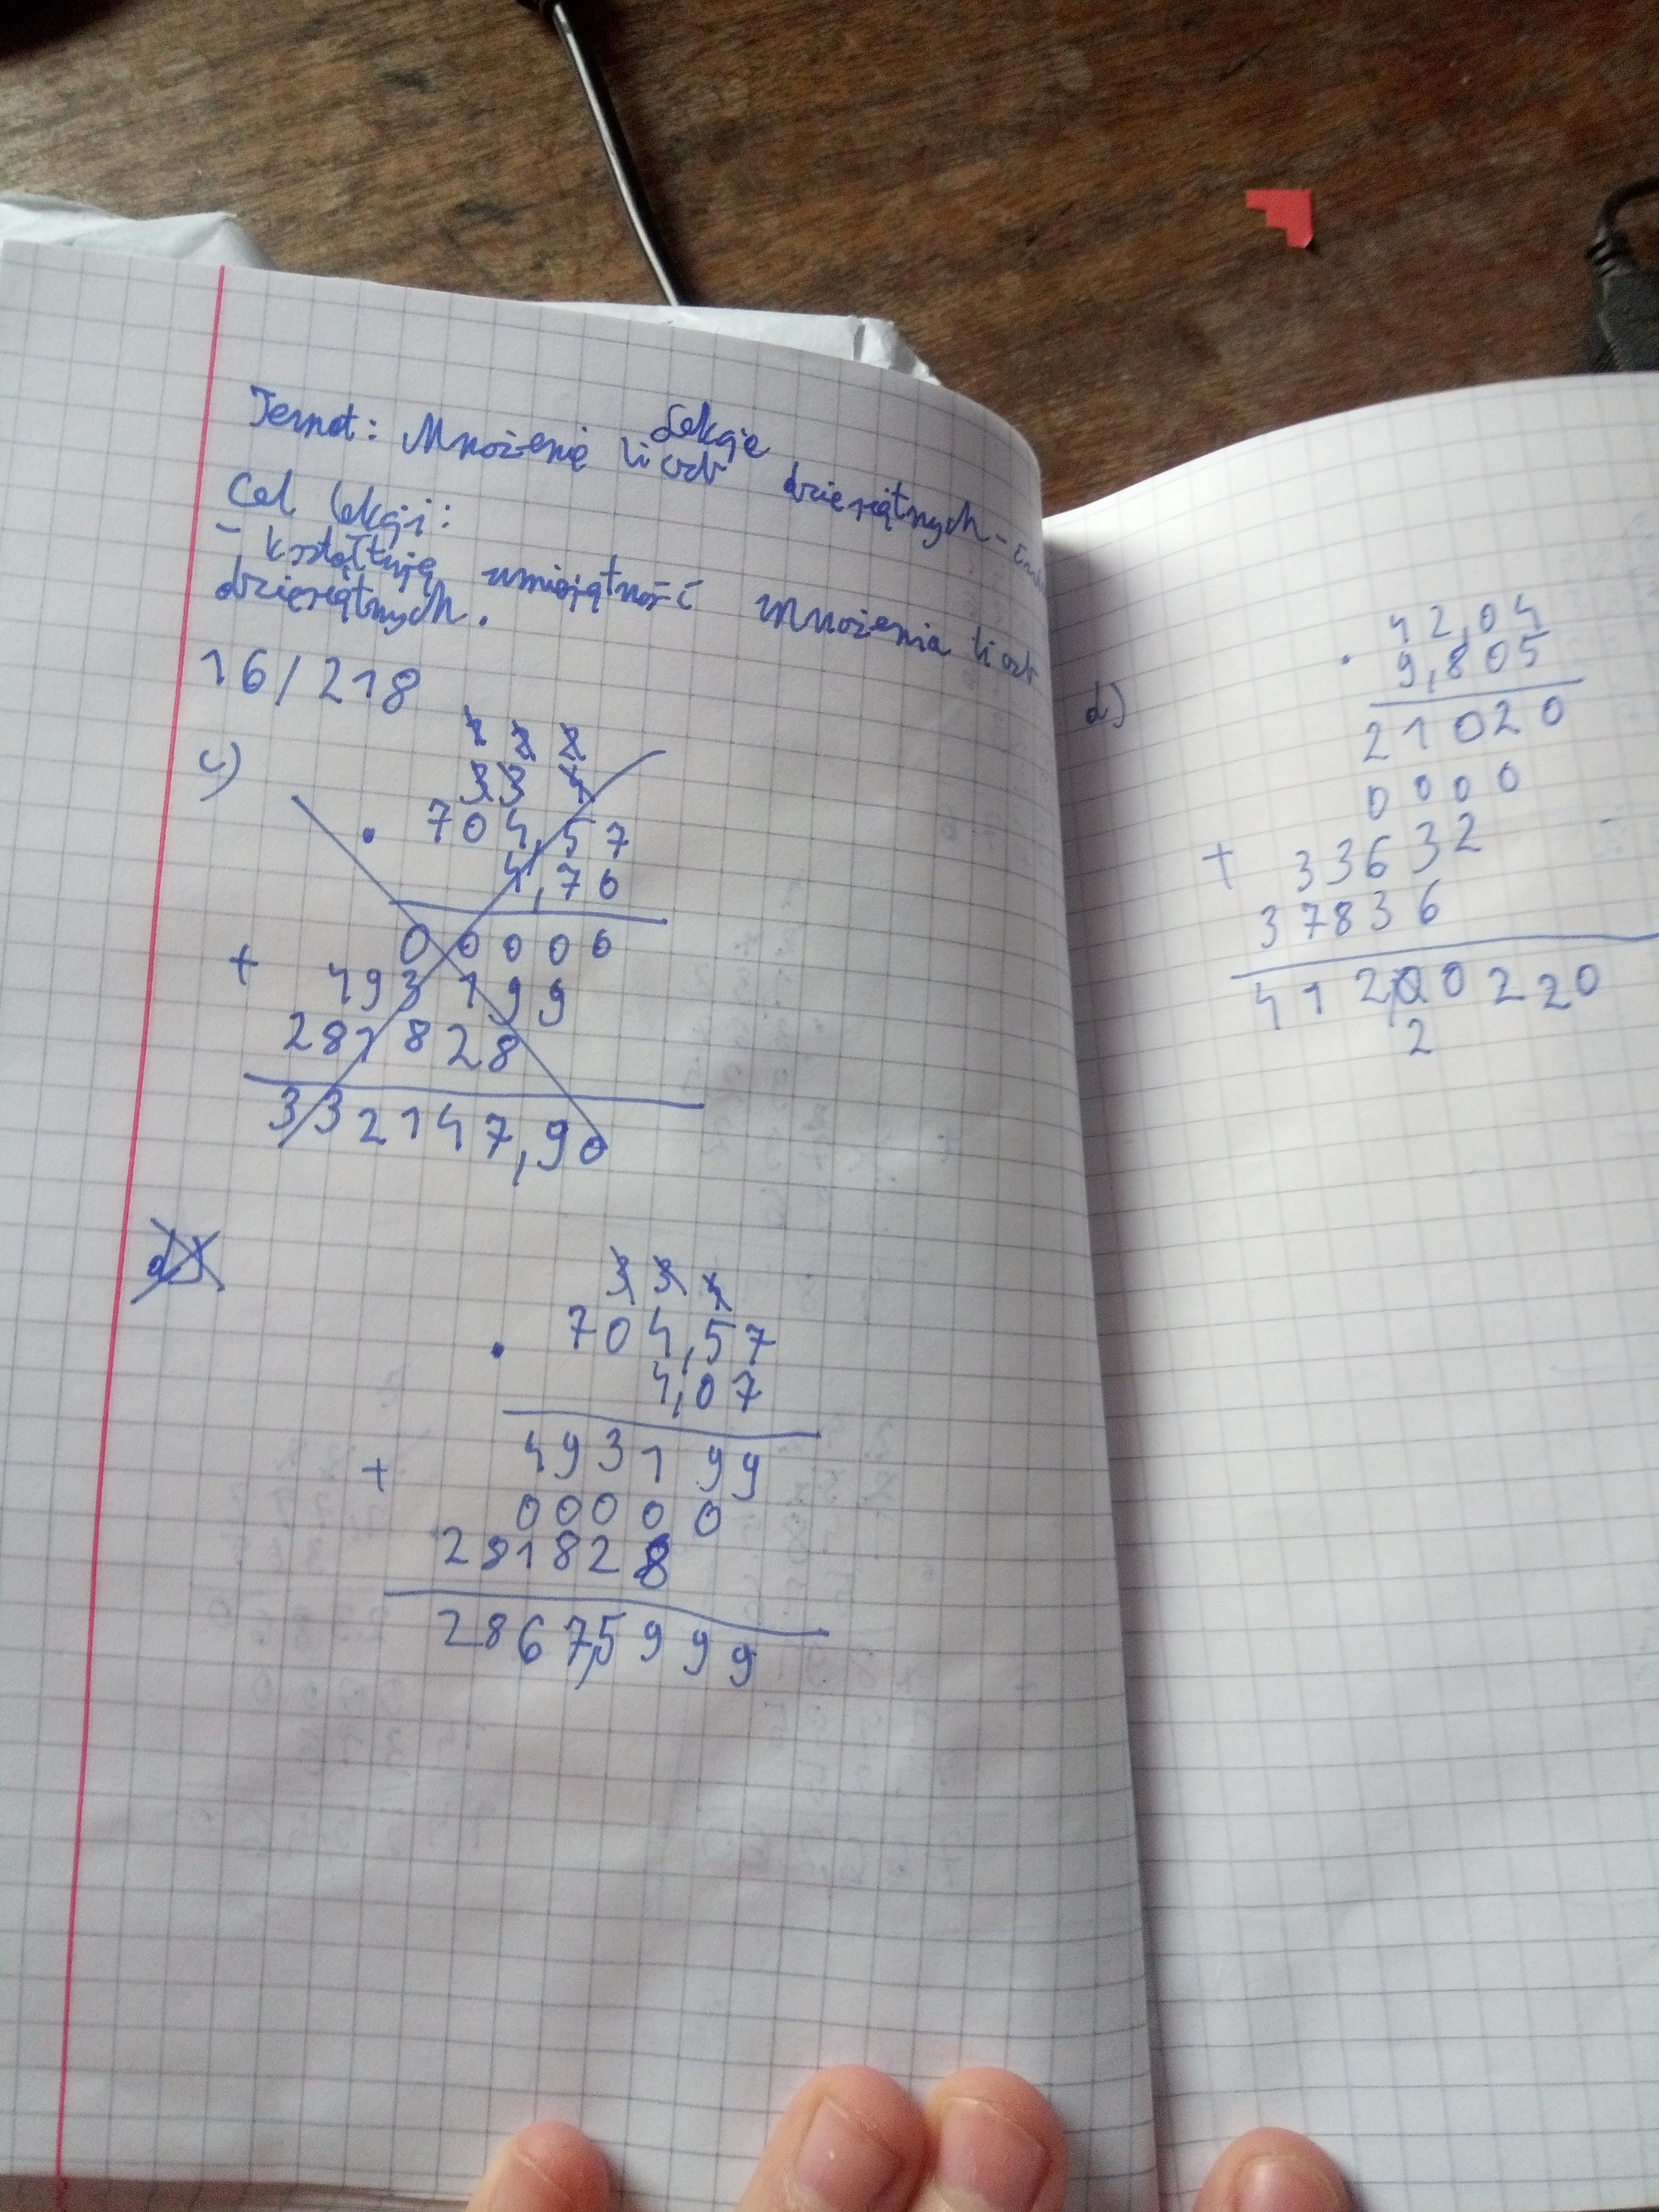 Lekcja
Temat: Mnożenie liczb dziesiętnych -
Cel lekcji:
- kształtuję umiejętność mnożenia liczb
dziesiętnych.
16/218
c)
1 2 2
3 3 4
· 704,57
4,70
00000
+ 493199
281828
332147,90
d)
3 3 4
· 704,57
4,07
493199
+ 00000
281828
2867,5999
d)
42,04
· 9,805
21020
0000
+ 33632
37836
412,00220
2